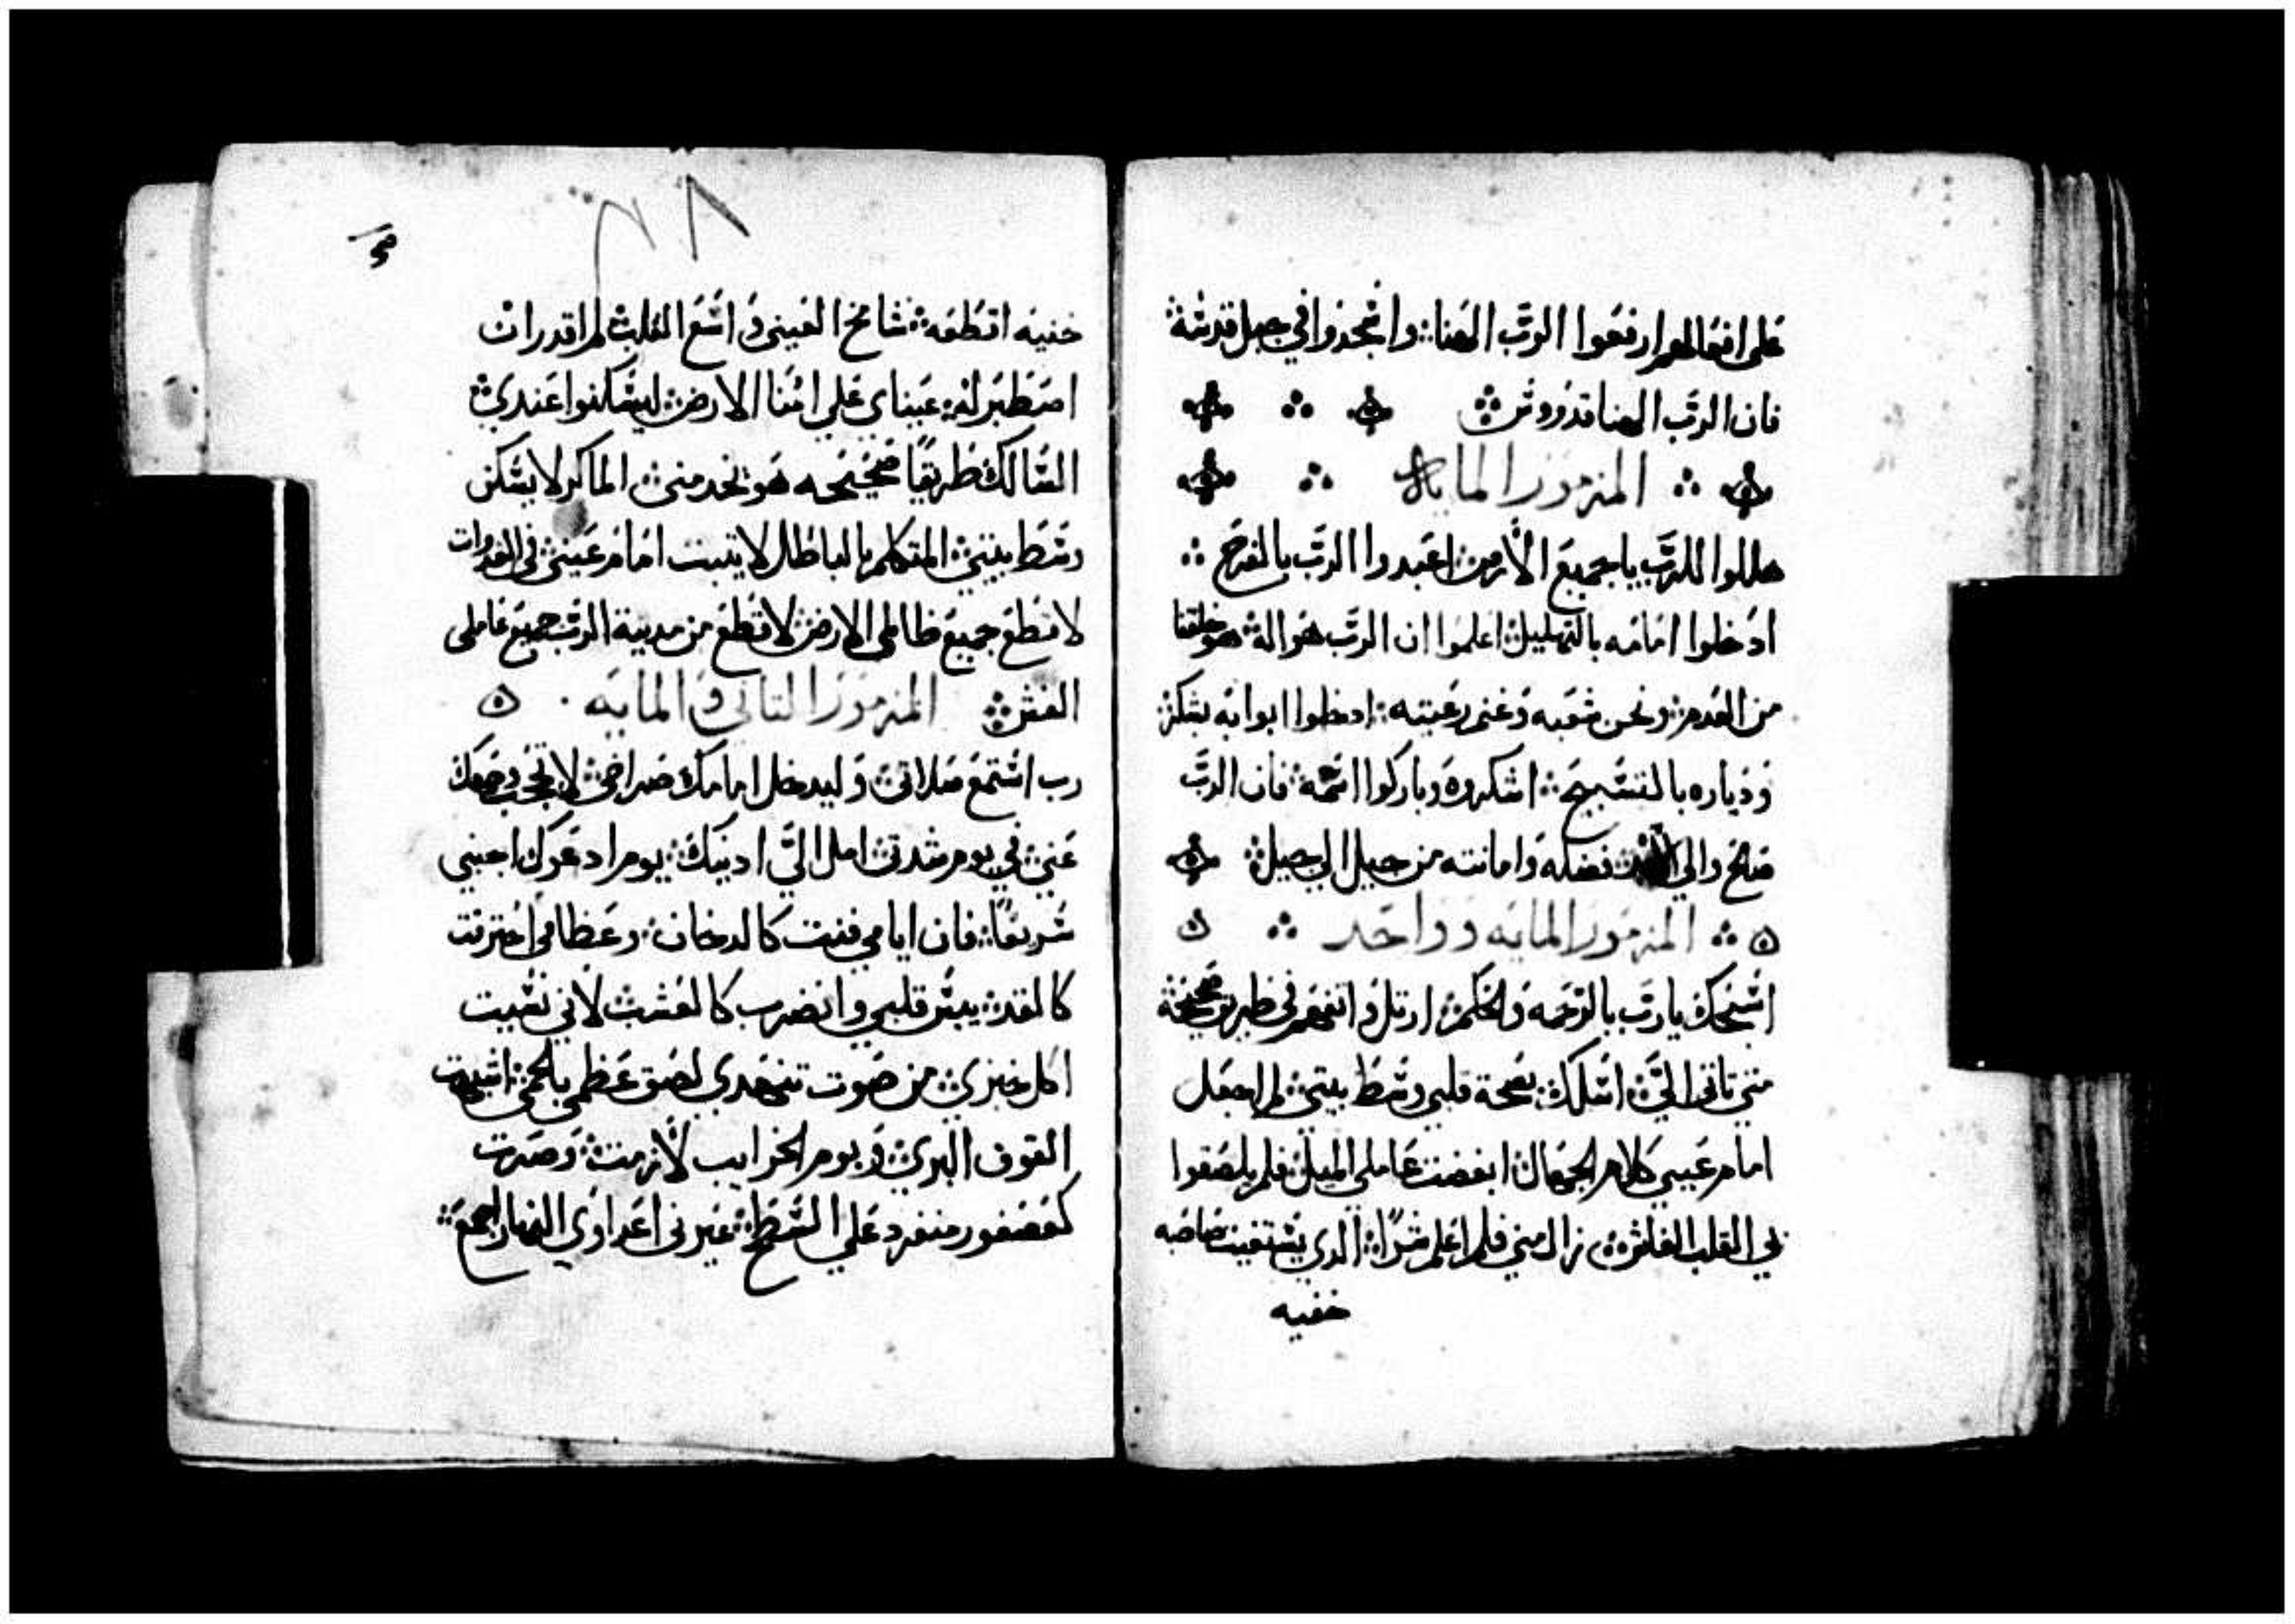 على افعالهم ارفعوا الرب الهنا واسجدوا في جبل قدسه
فان الرب الهنا قدووس
المزمور المايه
هللوا للرب يا جميع الأرض اعبدوا الرب بالفرح
ادخلوا امامه بالتهليل اعلموا ان الرب هو اله هو خلقنا
من العدم ونحن شعبه وغنم رعيته ادخلوا ابوابه بشكر
ودياره بالتسبيح اشكروه وباركوا اسمه فان الرب
صالح والي فضله وامانته من جيل الي جيل
المزمور المايه وواحد
اسبحك يارب بالرحمه والحكم ارتل واتفهم في طريق صحيحه
متي تاتي اليّ اسلك بصحة قلبي وسط بيتي لم اجعل
امام عيني كلام الجهال ابغضت عاملي الميل فلم يلصقوا
بي القلب الفلش زال مني فلم اعلم شرًا الدي يستغيب صاحبه
خفيه
خفيه اقطعه شامخ العينين واسع القلب لم اقدر ان
اصطبر له عيناي علي امنا الارض ليسكنوا عندي
السالك طريقًا صحيحه هو يخدمني الماكر لا يسكن
وسط بيتي المتكلم بالباطال لا يتبت امام عيني في الغدوات
لاقطع جميع ظالمي الارض لاقطع من مدينة الرب جميع عاملي
الغش المزمور التاني والمايه
رب استمع صلاتي وليدخل امامك صراخي لا تحجب وجهك
عني في يوم شدتي امل اليّ ادنيك يوم ادعوك اجبني
سريعًا فان ايامي فنيت كالدخان وعظامي احترقت
كالقد يبس قلبي وانضرب كالعشب لأني نسيت
اكل خبزي من صوت تنهدي لصق عظمي بلحمي اشبهت
القوق البري وبوم الخرايب لأزمت وصرت
كعصفور منفرد علي السطح عيرني اعداوي النهار اجمع